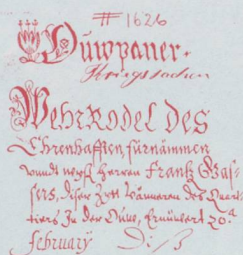 # 1626
Ouwpaner.
Kriegssachen
Wehrrodel des
Ehrenhafften fürnämmen
unndt wysen herren Frantz Gas-
sers, diser Zytt banneren des Quart-
tiers In der Ouw, Ernüwert 20.a
february